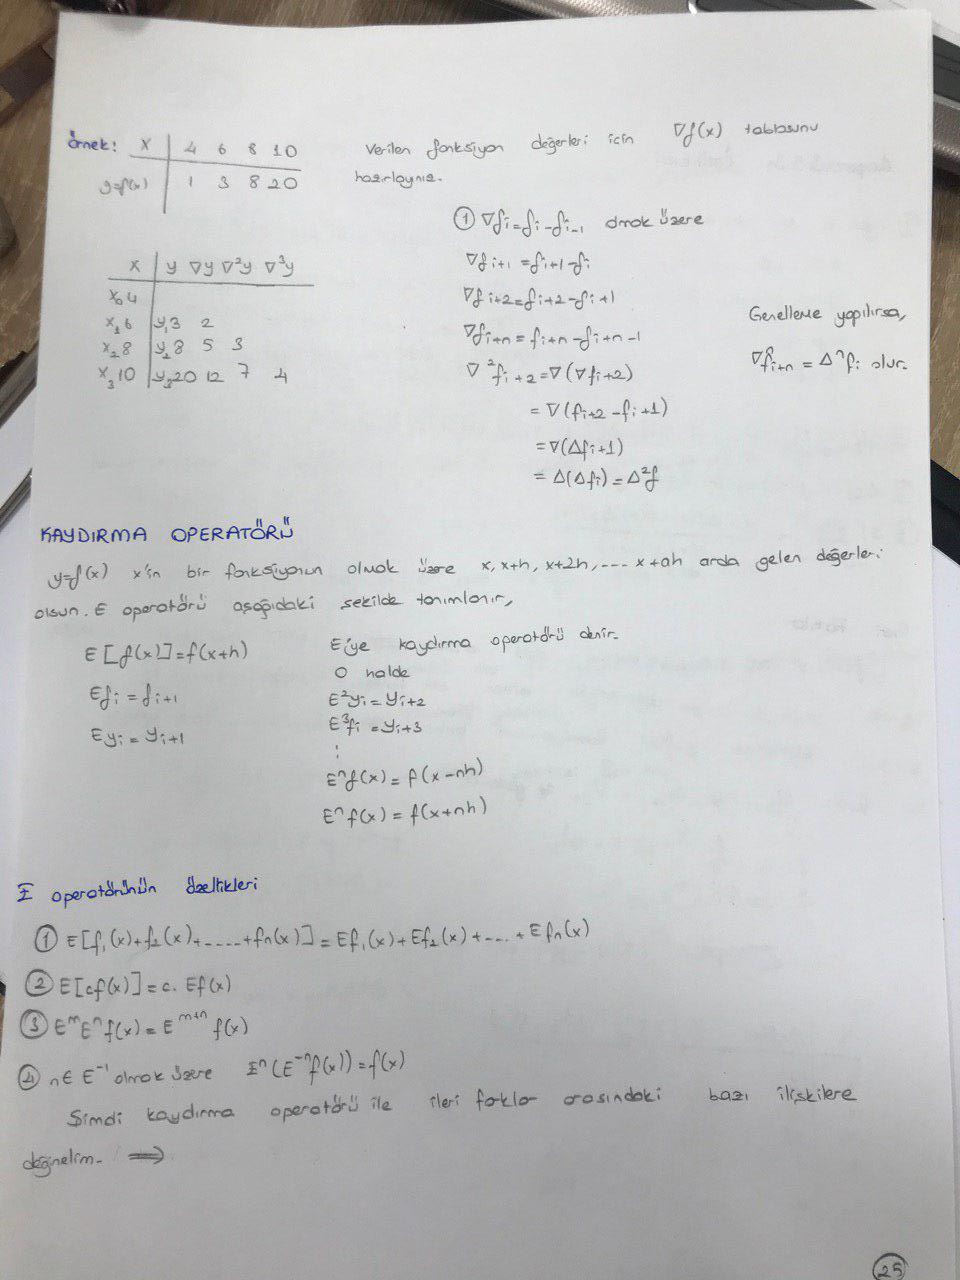 Örnek: x | 4 6 8 10
y=f(x) | 1 3 8 20
Verilen fonksiyon değerleri için ∇f(x) tablosunu
hazırlayınız.
x | y ∇y ∇²y ∇³y
x₀ 4
x₁ 6 | y₁ 3 2
x₂ 8 | y₂ 8 5 3
x₃ 10 | y₃ 20 12 7 4
① ∇fi = fi - fi-1 olmak üzere
∇fi+1 = fi+1 - fi
∇fi+2 = fi+2 - fi+1
∇fi+n = fi+n - fi+n-1
∇²fi+2 = ∇(∇fi+2)
= ∇(fi+2 - fi+1)
= ∇(Δfi+1)
= Δ(Δfi) = Δ²f
Genelleme yapılırsa,
∇ⁿfi+n = Δⁿfi olur.
KAYDIRMA OPERATÖRÜ
y=f(x) x'in bir fonksiyonun olmak üzere x, x+h, x+2h, ... x+ah arda gelen değerleri
olsun. E operatörü aşağıdaki sekilde tanımlanır,
E[f(x)] = f(x+h)
Efi = fi+1
Eyi = yi+1
E'ye kaydırma operatörü denir.
O halde
E²yi = yi+2
E³fi = yi+3
⋮
Eⁿf(x) = f(x-nh)
Eⁿf(x) = f(x+nh)
E operatörünün özeltikleri
① E[f₁(x)+f₂(x)+.....+fn(x)] = Ef₁(x)+Ef₂(x)+....+Efn(x)
② E[cf(x)] = c. Ef(x)
③ EᵐEⁿf(x) = Eᵐ⁺ⁿ f(x)
④ n∈ E⁻¹ olmak üzere Eⁿ(E⁻ⁿf(x)) = f(x)
Şimdi kaydırma operatörü ile ileri farklar arasındaki bazı ilişkilere
değinelim. ⇒
25